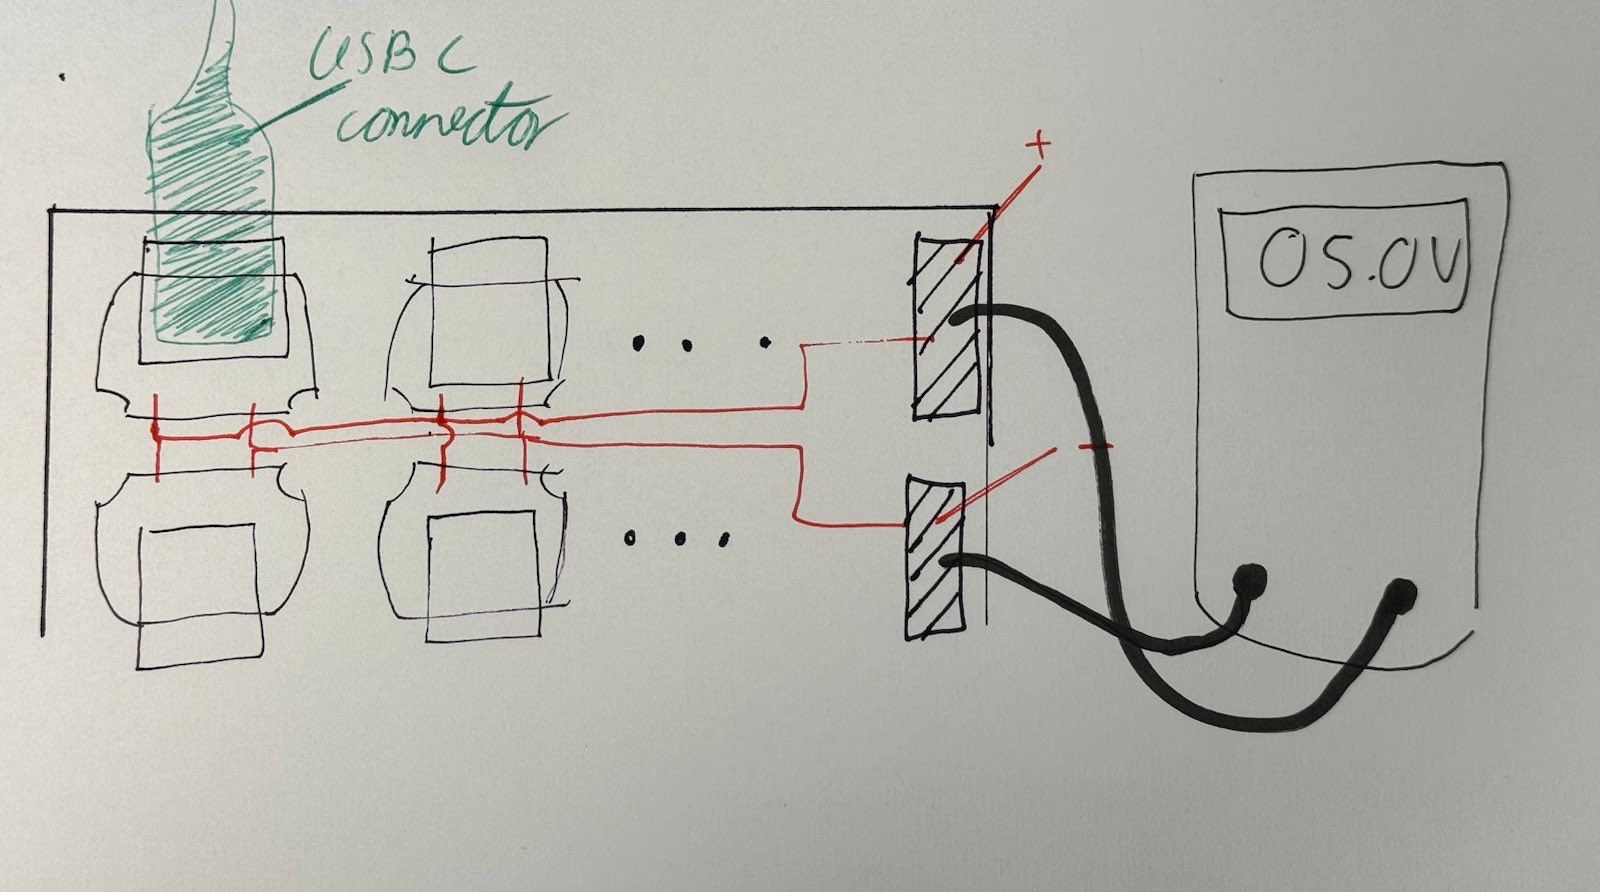 USB C
connector
+
05.0V
-